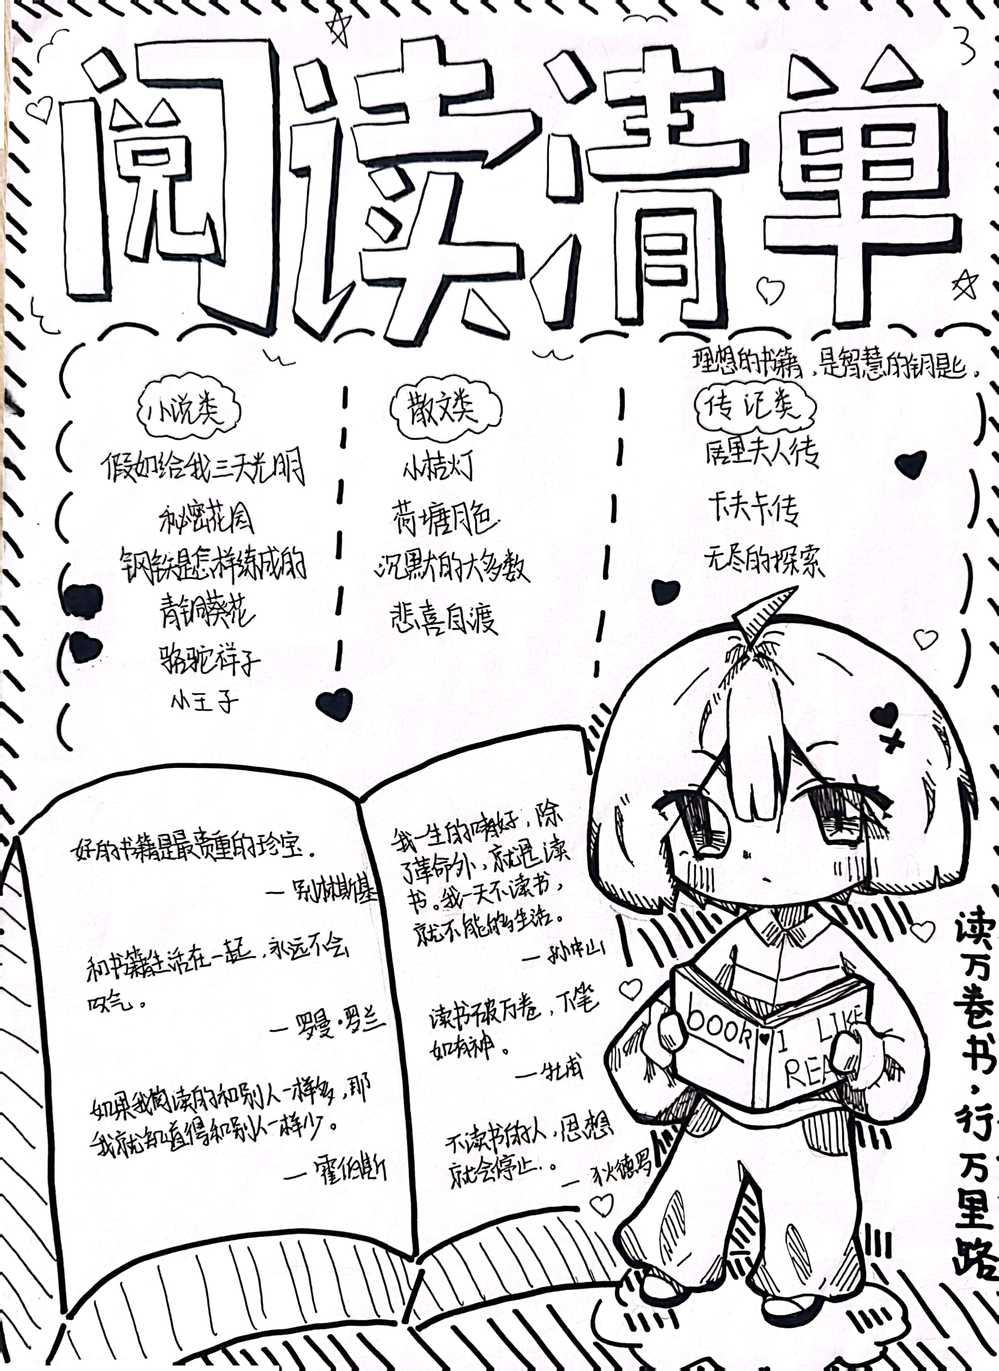 阅读清单
3
理想的书籍，是智慧的钥匙。
小说类
假如给我三天光明
秘密花园
钢铁是怎样练成的
青铜葵花
骆驼祥子
小王子
散文类
小桔灯
荷塘月色
沉默的大多数
悲喜自渡
传记类
居里夫人传
卡夫卡传
无尽的探索
好的书籍是最贵重的珍宝。
—别林斯基
和书籍生活在一起，永远不会
叹气。
—罗曼·罗兰
如果我阅读的和别人一样多，那
我就知道得和别人一样少。
—霍伯斯
我一生的嗜好，除
了革命外，就是读
书。我一天不读书，
就不能够生活。
—孙中山
读书破万卷，下笔
如有神。
—杜甫
不读书的人，思想
就会停止。
—狄德罗
book
I LIKE
REA
读万卷书，行万里路